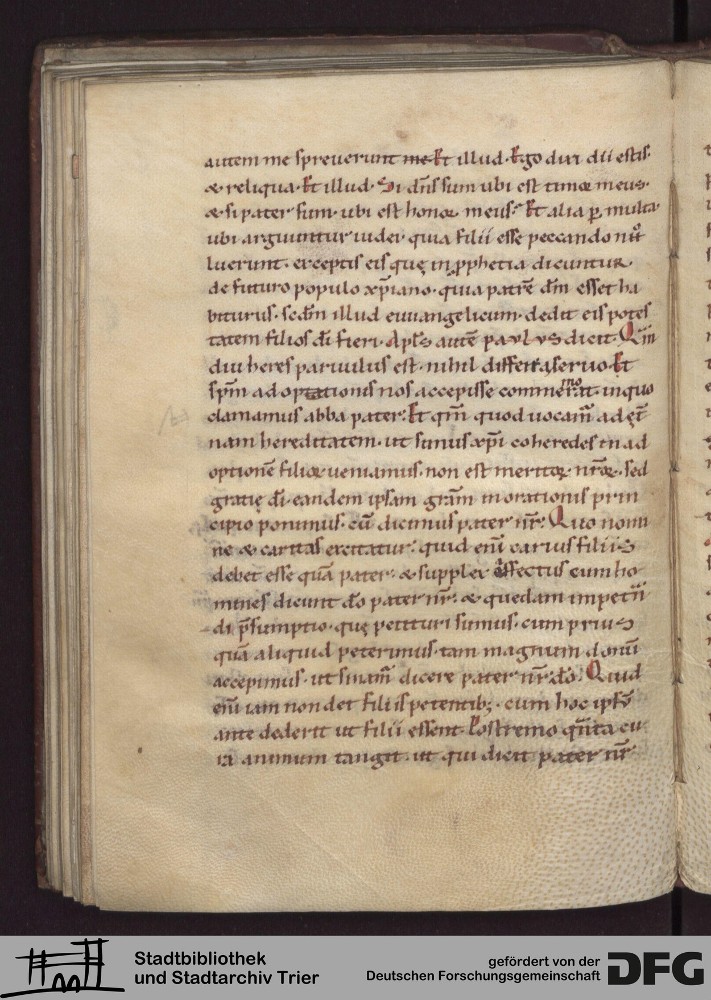 autem me spreverunt me Et illud. Ego dixi dii estis.
& reliqua. Et illud. Si dn̄s sum ubi est timor meus.
& si pater sum. ubi est honor meus. Et alia ꝑ multa
ubi arguuntur iudei quia filii esse peccando no
luerunt. exceptis eis quę in ꝓphetia dicuntur.
de futuro populo xp̄iano. quia patrē dm̄ esset ha
biturus. sedm̄ illud euuangelicum. dedit eis potes
tatem filios dī fieri. Apłs autē paulus dicit. Qm̄
diu heres parvulus est. nihil differt a servo. Et
spm̄ adoptationis nos accepisse commemorat. in quo
clamamus abba pater. Et qm̄ quod vocam̄ ad ęt̄
nam hereditatem. ut simus xp̄i coheredes & in ad
optionē filioꝝ veniamus. non est meritoꝝ nr̄oꝝ. sed
gratię dī. eandem ipsam grām in orationis prin
cipio ponimus. cū dicimus pater nr̄. Quo nomi
ne & caritas excitatur. quid enī carius filiis
debet esse quā pater. & supplex affectus cum ho
mines dicunt dō pater nr̄. & quedam impetn̄
di p̄sumptio. quę petituri sumus. cum prius
quā aliquid peterimus. tam magnum donū
accepimus. ut sinam̄ dicere pater nr̄ dō. Quid
enī iam non det filiis petentibꝫ. cum hoc ipsū
ante dederit ut filii essent. Postremo qn̄ta cu
ra animum tangit. ut qui dicit pater nr̄
Stadtbibliothek
und Stadtarchiv Trier
gefördert von der
Deutschen Forschungsgemeinschaft
DFG